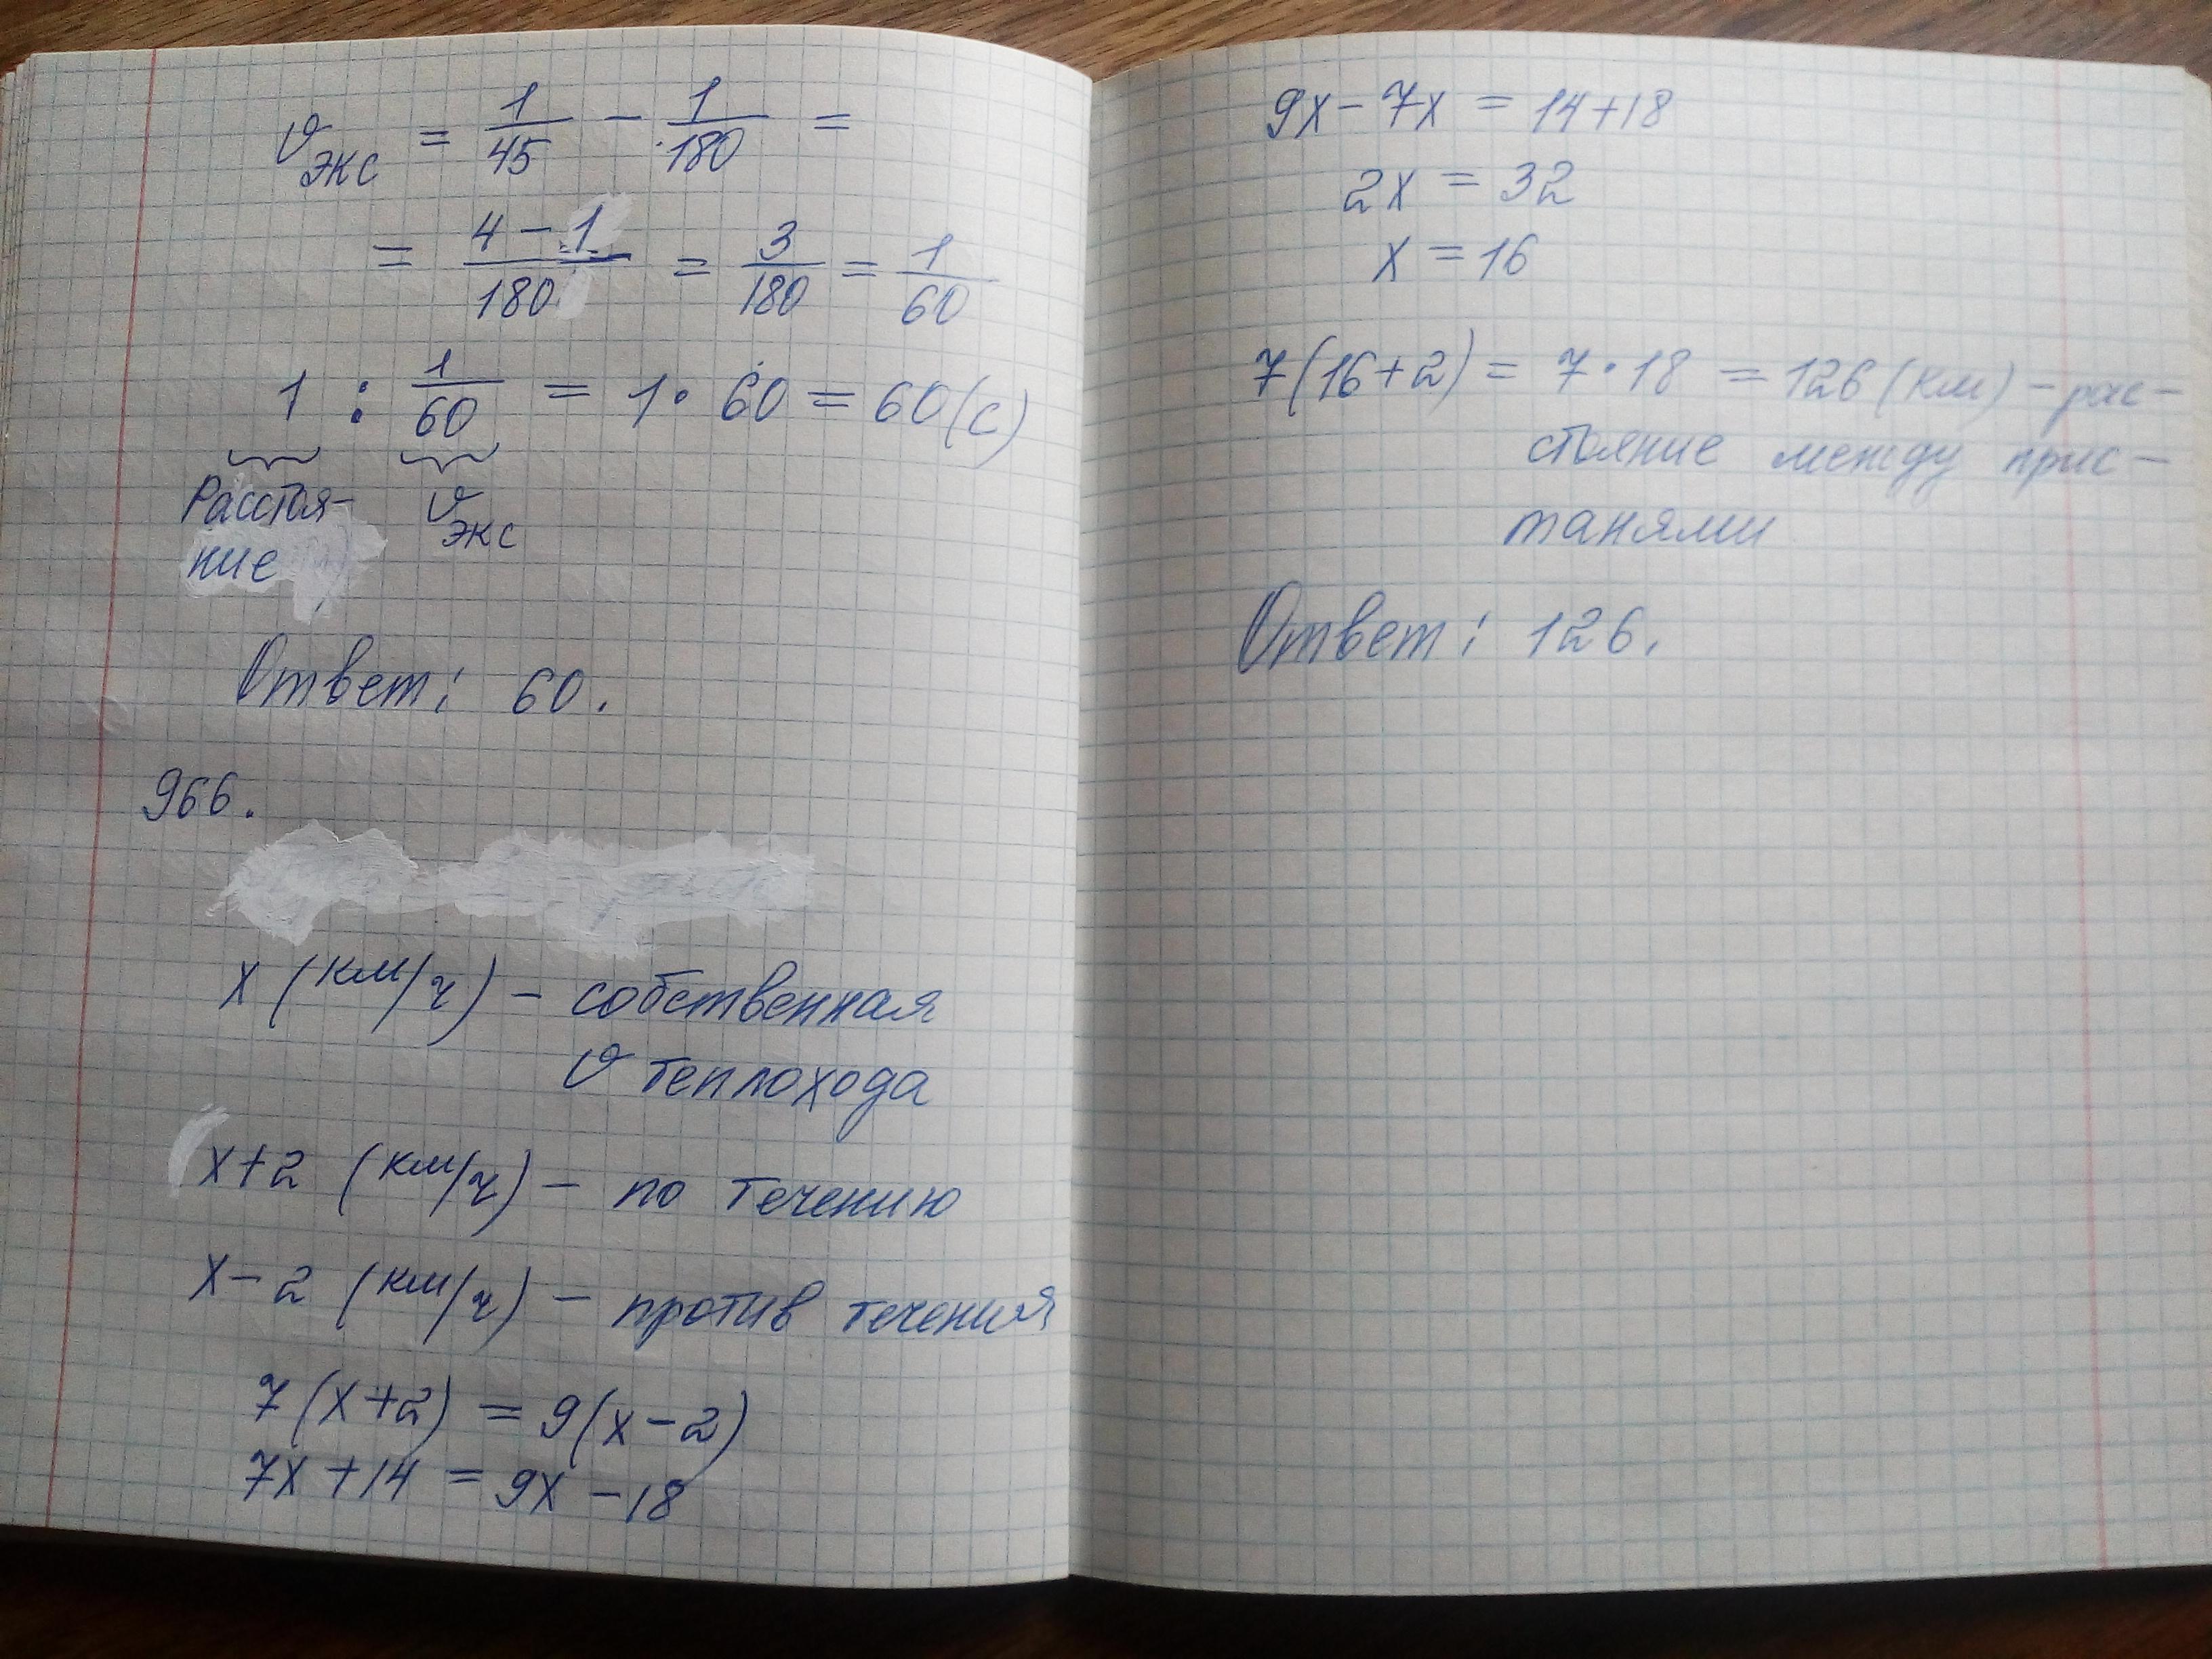 υэкс = 1/45 − 1/180 =
= (4 − 1)/180 = 3/180 = 1/60
1 : 1/60 = 1 · 60 = 60 (с)
Расстоя- υэкс
ние
Ответ: 60.
966.
x (км/ч) − собственная
υ теплохода
x+2 (км/ч) − по течению
x−2 (км/ч) − против течения
7(x+2) = 9(x−2)
7x+14 = 9x−18
9x−7x = 14+18
2x = 32
x = 16
7(16+2) = 7·18 = 126 (км) − рас-
стояние между прис-
танями
Ответ: 126.